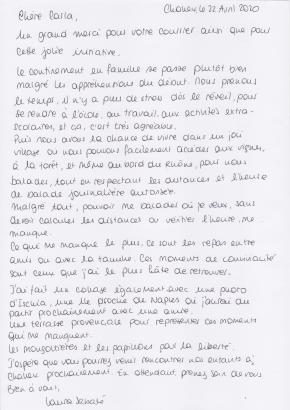 Chère Carla,
Un grand merci pour votre courrier ainsi que pour
cette jolie initiative.
Le confinement en famille se passe plutôt bien
malgré les appréhensions du début. Nous prenons
le temps, il n'y a plus de stress dès le réveil, pour
se rendre à l'école, au travail, aux activités extra-
scolaires, et ça, c'est très agréable.
Puis nous avons la chance de vivre dans un joli
village où nous pouvons facilement accéder aux vignes,
à la forêt, et même au bord du Rhône, pour nous
balader, tout en respectant les distances et l'heure
de balade journalière autorisée.
Malgré tout, pouvoir me balader où je veux, sans
devoir calculer les distances ou vérifier l'heure, me
manque.
Ce qui me manque le plus, ce sont les repas entre
amis ou avec la famille. Ces moments de convivialité
sont ceux que j'ai le plus hâte de retrouver.
J'ai fait un collage également avec une photo
d'Ischia, une île proche de Naples où j'aurais du
partir prochainement avec une amie.
Une terrasse provençale pour représenter ces moments
qui me manquent.
Les montgolfières et les papillons pour la liberté.
J'espère que vous pourrez venir rencontrer nos enfants à
prochainement. En attendant, prenez soin de vous
Bien à vous,